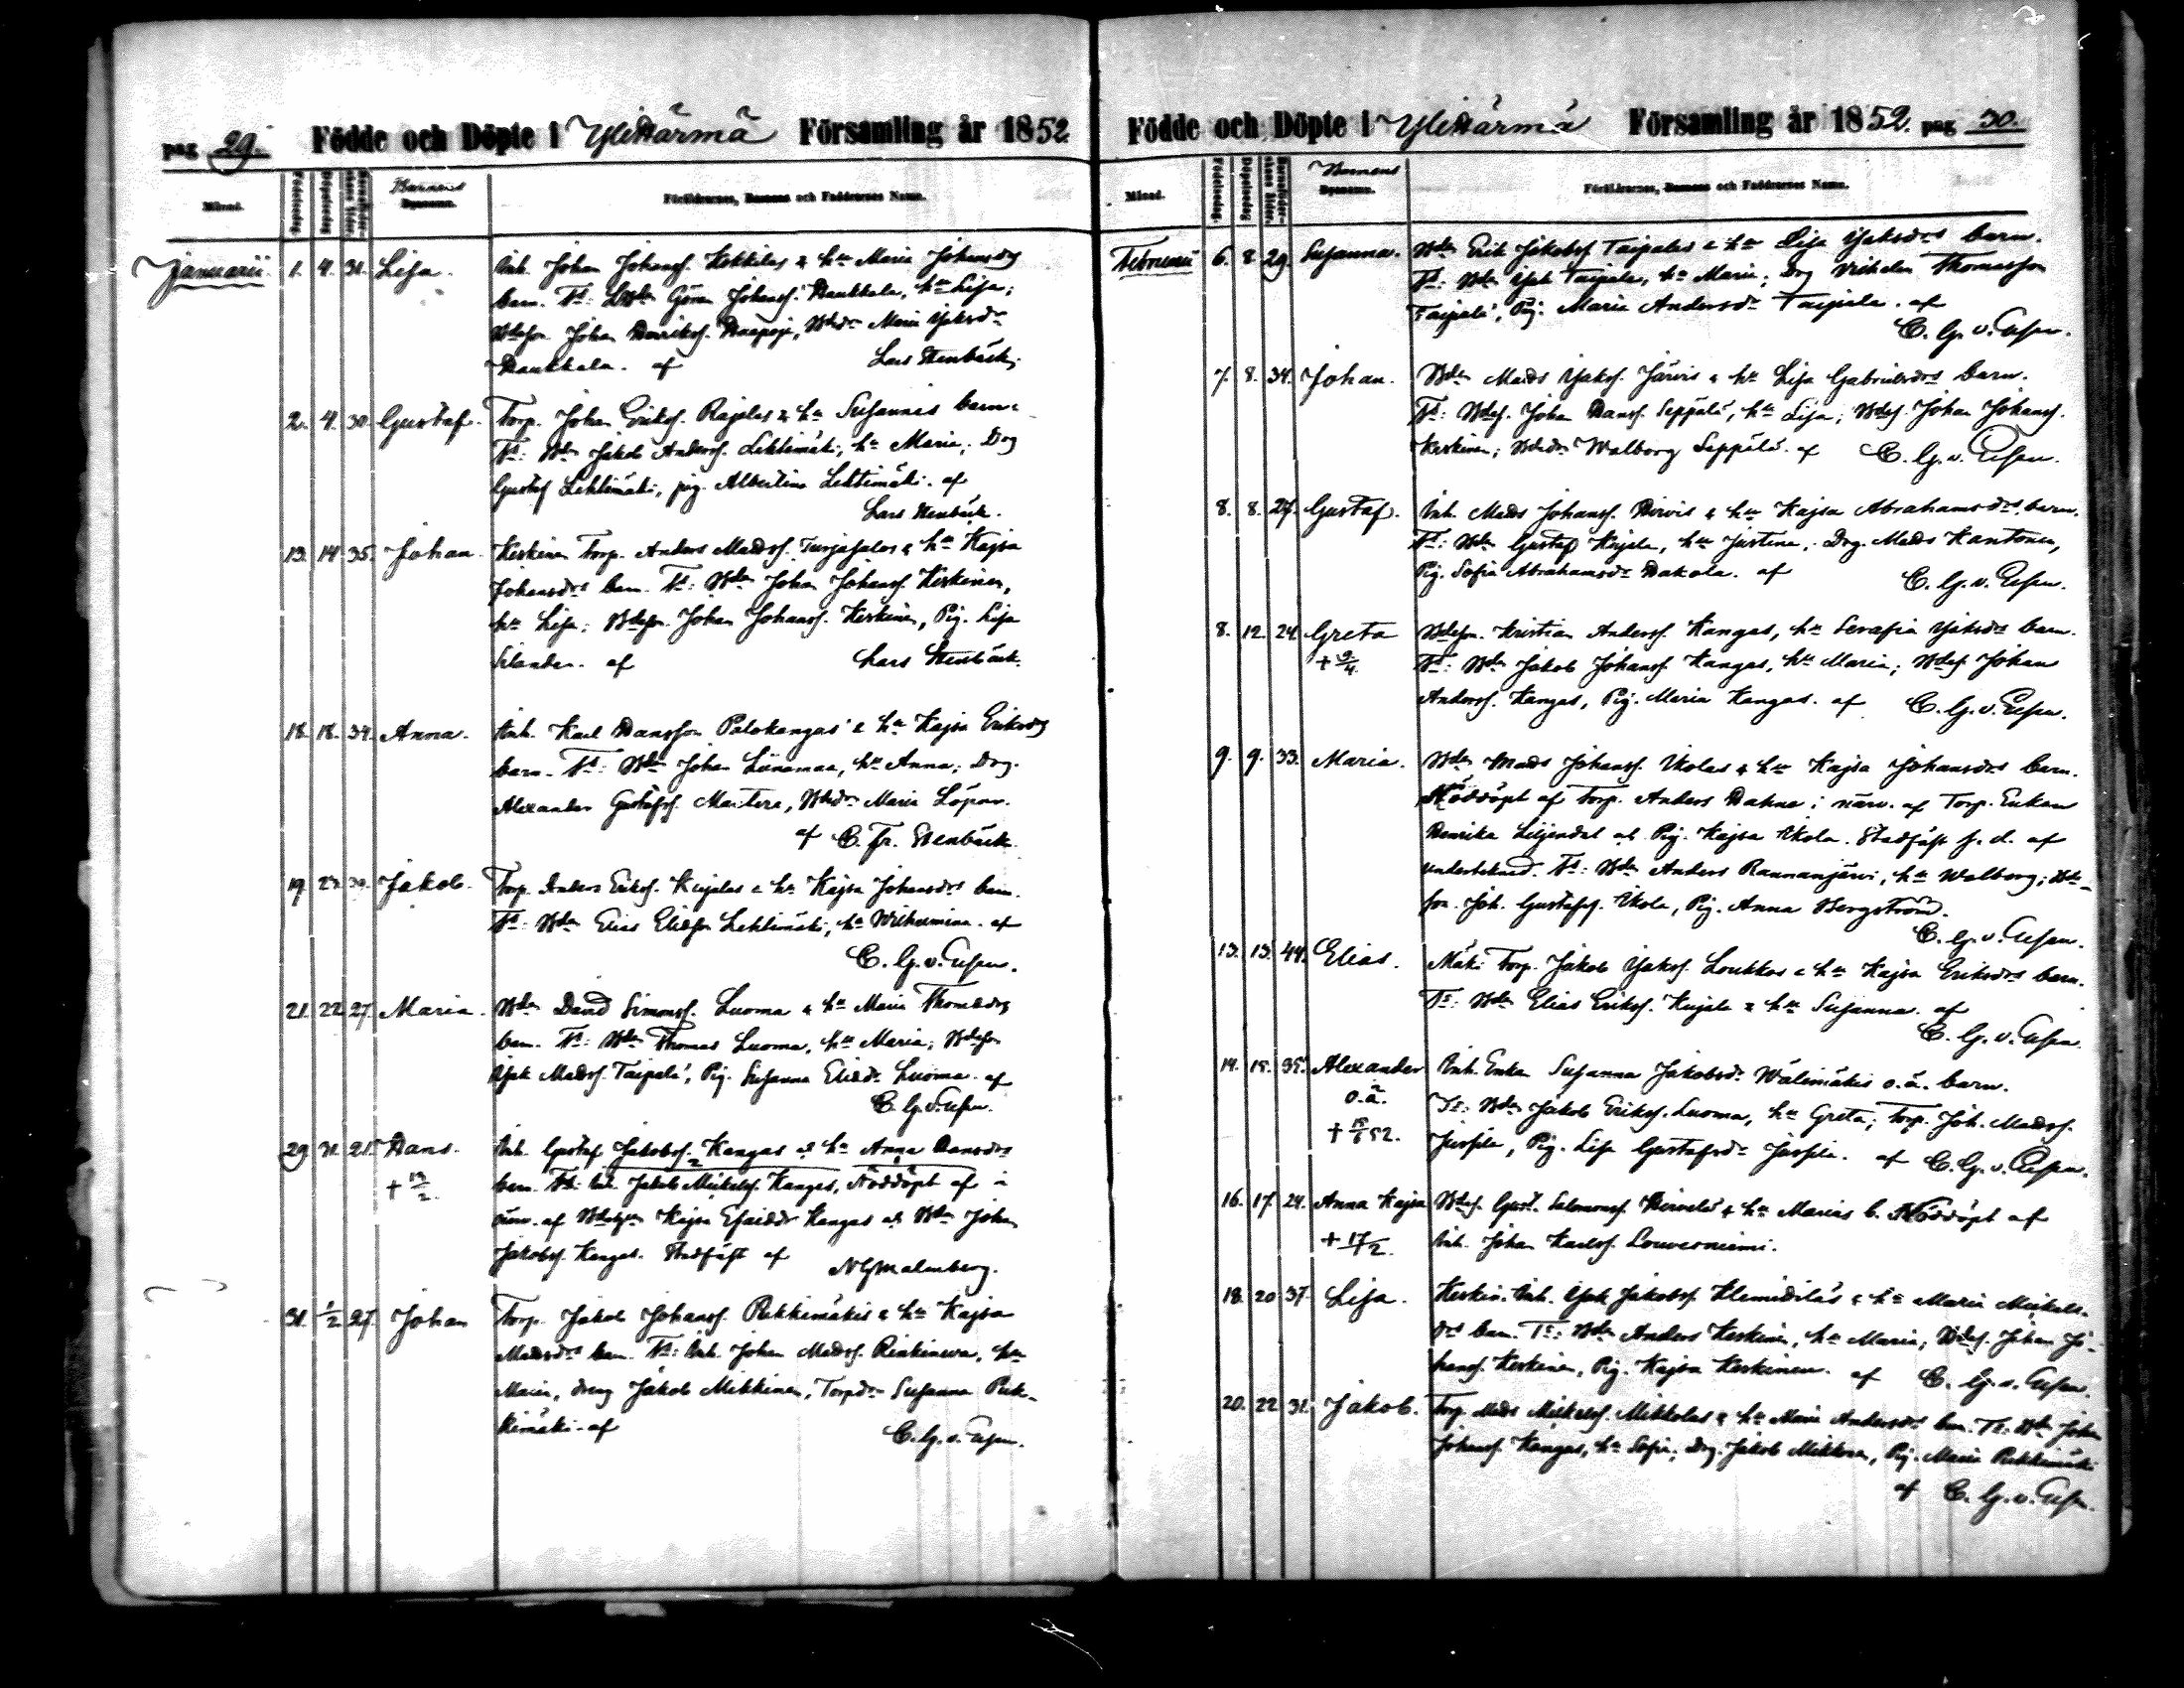 pag 29. Födde och Döpte i Ylihärmä Församling år 1852
Månad. Födelsedag. Döpelsedag Barnens Dpnamn. Föräldrarnes, Barnens och Faddrarnes Namn.
Januarii 1. 4. 31. Lisa. Inh. Johan Johanss. Kokkilas & hu Maria Johansdrs
barn. Ts: Göran Johanss. Haukkala, hu Lisa;
Bdeson Johan Henrikss. Bdedr Maria
Haukkala. af Lars Stenbäck.
2. 4. 30. Gustaf. Torp. Johan Erikss. Rajalas & hu Susannas barn.
Ts: Bdn Jakob Anderss. Lehtimäki, hu Maria; Drg
Gustaf Lehtimäki, pig. Albertina Lehtimäki. af
Lars Stenbäck.
13. 14. 35. Johan. Keskinen Torp. Anders Madss. & hu Kajsa
Johansdrs barn. Ts: Bdn Johan Johanss. Keskinen,
hu Lisa; Bdeson Johan Johanss. Keskinen, Pig. Lisa
af Lars Stenbäck.
18. 18. 34. Anna. Inh. Karl Hansson Palokangas & hu Kajsa Eriksdrs
barn. Ts: Bdn Johan Liinamaa, hu Anna; Drg.
Alexander Gustafss. Bdedr Maria
af C. Fr. Stenbäck.
19. Jakob. Torp. Anders Erikss. Kujalas & hu Kajsa Johansdrs barn.
Ts: Bdn Elias Eliasson Lehtimäki, hu Wilhelmina. af
C. G. v. Essen.
21. 22. 27. Maria. Bdn David Simonss. Luoma & hu Maria Thomædrs
barn. Ts: Bdn Thomas Luoma, hu Maria; Bdeson
Isak Madss. Taipale, Pig. Susanna Eliædr Luoma. af
C. G. v. Essen.
29. 31. 21. Hans. Inh. Gustaf Jakobss. Kangas & hu Anna Hansdrs
+ 13/2. barn. Ts: Inh. Jakob Mickelss. Kangas, Nöddöpt af i
närv. af Kajsa Esaiædr Kangas & Bdn Johan
Jakobss. Kangas. Stadfäst af N G Malmberg.
31. 1/2 27. Johan Torp. Jakob Johanss. Pukkimäkis & hu Kajsa
Madsdrs barn. Ts: Inh. Johan Madss. hu
Maria, dreng Jakob Mikkinen, Torpdr Susanna Puk-
kimäki. af C. G. v. Essen.
Födde och Döpte i Ylihärmä Församling år 1852. pag 30.
Månad. Födelsedag. Döpelsedag Barnens Dpnamn. Föräldrarnes, Barnens och Faddrarnes Namn.
Februarii 6. 8. 29. Susanna. Bdn Erik Jakobss. Taipales & hu Lisa Isaksdrs barn.
Ts: Bdn Isak Taipale, hu Maria; Drg Wilhelm Thomasson
Taipale, Pig. Maria Andersdr Taipale. af
C. G. v. Essen.
7. 8. 34. Johan. Bdn Mads Isakss. Järvis & hu Lisa Gabrielsdrs barn.
Ts: Bdes. Johan Hanss. Seppälä, hu Lisa; Bdes. Johan Johanss.
Keskinen; Bdedr Walborg Seppälä. af C. G. v. Essen.
8. 8. 27. Gustaf. Inh. Mads Johanss. Hirvis & hu Kajsa Abrahamsdrs barn.
Ts: Bdn Gustaf Kujala, hu Justina; Drg. Mads Kantonen,
Pig. Sofia Abrahamsdr Hakola. af C. G. v. Essen.
8. 12. 24. Greta Bdeson. Kristian Anderss. Kangas, hu Serafia Isaksdrs barn.
+ 9/4. Ts: Bdn Jakob Johanss. Kangas, hu Maria; Bdes. Johan
Anderss. Kangas, Pig. Maria Kangas. af C. G. v. Essen.
9. 9. 33. Maria. Bdn Mads Johanss. Ikolas & hu Kajsa Johansdrs barn.
Nöddöpt af Torp. Anders i närv. af Torp. Enkan
Henrika Liljendal & Pig. Kajsa Ikola. Stadfäst s. d. af
undertecknad. Ts: Bdn Anders Rannanjärvi, hu Walborg; Bde-
son. Joh. Gustafss. Ikola, Pig. Anna Bergström.
C. G. v. Essen.
13. 13. 44. Elias. Mäki Torp. Jakob Isakss. Loukkos & hu Kajsa Eriksdrs barn.
Ts: Bdn Elias Erikss. Kujala & hu Susanna. af
C. G. v. Essen.
14. 15. 35. Alexander Inh. Enkan Susanna Jakobsdr Wälimäkis o.ä. barn.
o.ä. Ts: Bdn Jakob Erikss. Luoma, hu Greta; Torp. Joh. Madss.
Jussila, Pig. Lisa Gustafsdr Jussila. af C. G. v. Essen.
16. 17. 24. Anna Kajsa Bdes. Gust. Salomonss. Hirvelä & hu Marias b. Nöddöpt af
+ 17/2. Inh. Johan Karlss. Louvesniemi.
18. 20 37. Lisa. Keskin. Inh. Isak Jakobss. & hu Maria Mickels-
drs barn. Ts: Bdn Anders Keskinen, hu Maria; Bdes. Johan Jo-
hanss. Keskinen, Pig. Kajsa Keskinen. af C. G. v. Essen.
20. 22 31. Jakob. Torp. Mads Mickelss. Mikkolas & hu Maria Andersdrs barn. Ts: Bdn Johan
Johanss. Kangas, hu Sofia; Drg. Jakob Mikkonen, Pig. Maria Pukkimäki
af C. G. v. Essen.